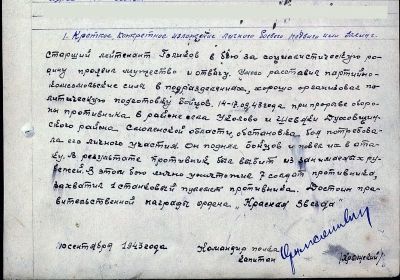 I. Краткое, конкретное изложение личного боевого подвига или заслуг.
Старший лейтенант Голиков в бою за социалистическую ро-
дину проявил мужество и отвагу. Умело расставив партийно-
комсомольские силы в подразделениях, хорошо организовал по-
литическую подготовку бойцов. 14-17.09.43 года при прорыве оборо-
ны противника в районе села и Шеваки Духовщин-
ского района Смоленской области, обстановка боя потребова-
ла его личного участия. Он поднял бойцов и повел их в ата-
ку. В результате противник был выбит из занимаемых ру-
бежей. В этом бою лично уничтожил 7 солдат противника,
захватил 1 станковый пулемет противника. Достоин пра-
вительственной награды ордена „Красная Звезда"
сентября 1943 года Командир полка
капитан